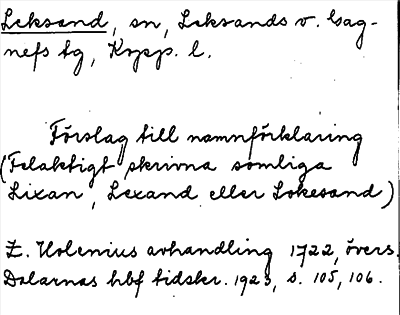 Leksand, sn, Leksands o. Gag-
nefs tg, Kopp. l.
Förslag till namnförklaring
(Felaktigt skrivna somliga
Lixan, Lexand eller Lokesand)
Z. Holenius avhandling 1722, övers.
Dalarnas hbf tidskr. 1923, s. 105, 106.